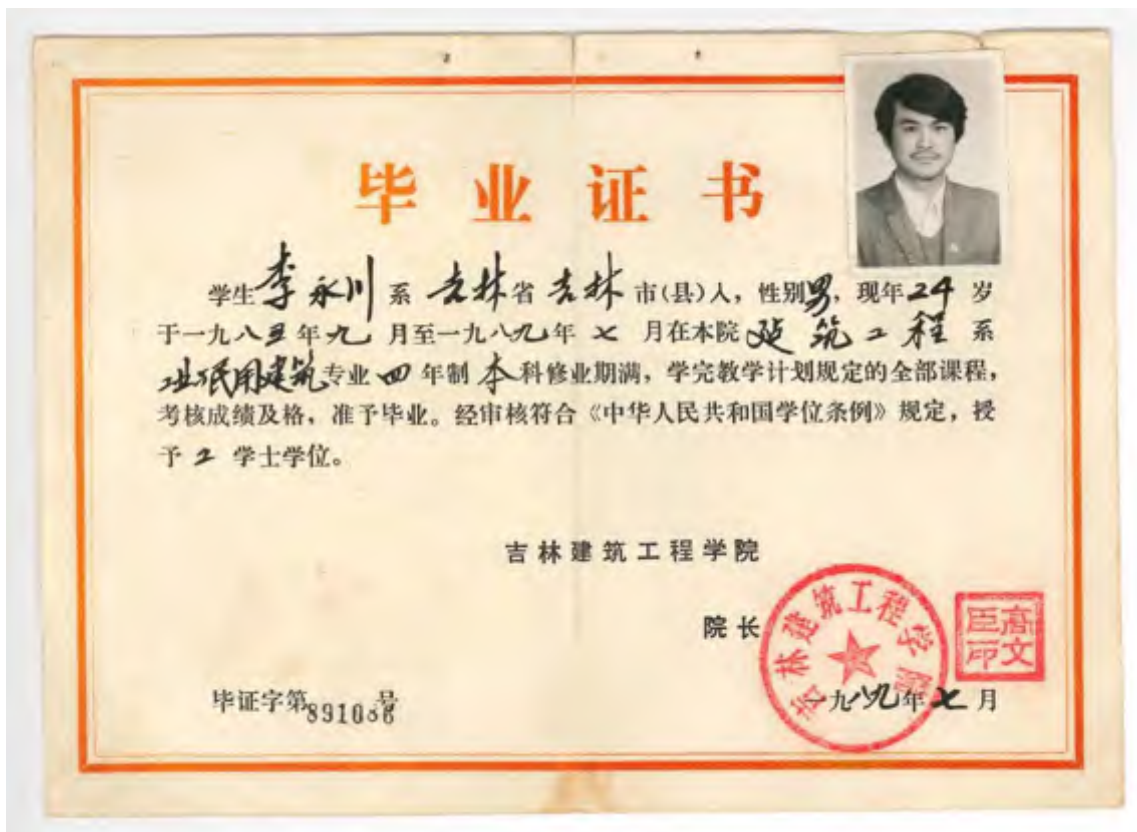 毕业证书
学生李永川系吉林省吉林市(县)人，性别男，现年24岁
于一九八五年九月至一九八九年七月在本院建筑工程系
工业民用建筑专业四年制本科修业期满，学完教学计划规定的全部课程，
考核成绩及格，准予毕业。经审核符合《中华人民共和国学位条例》规定，授
予工学士学位。
吉林建筑工程学院
院长
吉林建筑工程学院
高文
臣印
毕证字第 号
一九八九年七月